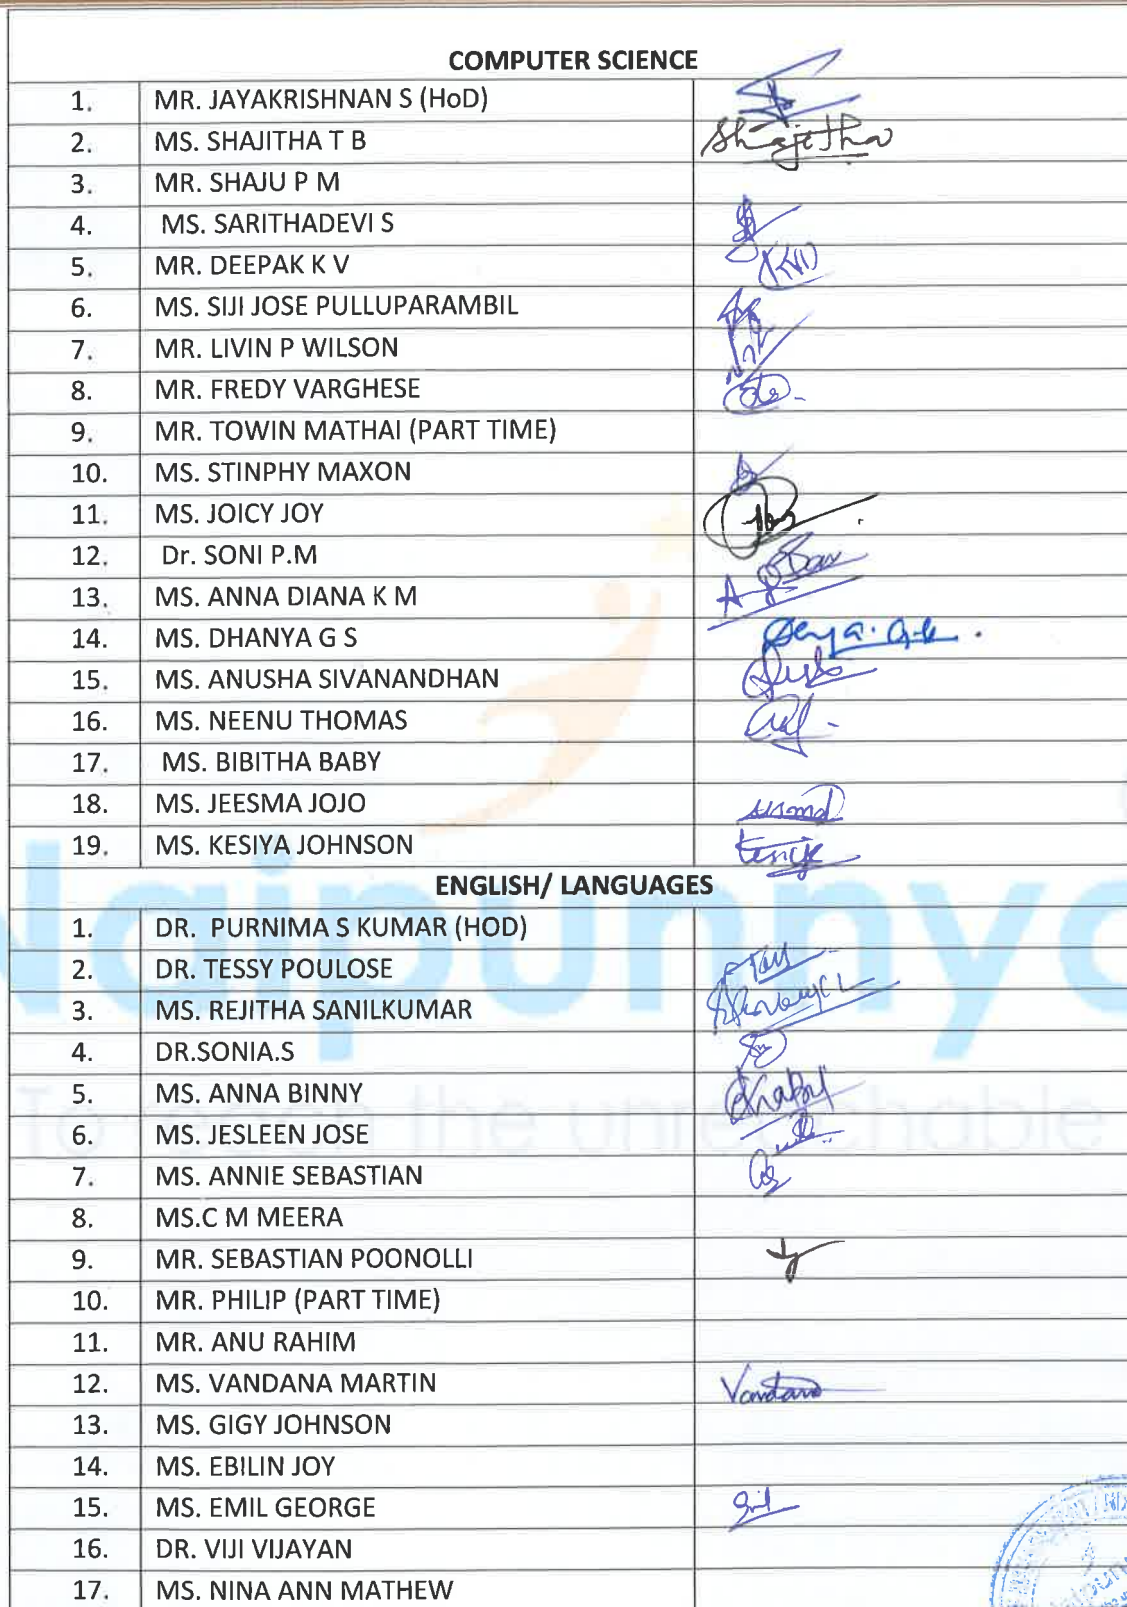 COMPUTER SCIENCE
1. MR. JAYAKRISHNAN S (HoD)
2. MS. SHAJITHA T B Shajitha
3. MR. SHAJU P M
4. MS. SARITHADEVI S
5. MR. DEEPAK K V
6. MS. SIJI JOSE PULLUPARAMBIL
7. MR. LIVIN P WILSON
8. MR. FREDY VARGHESE
9. MR. TOWIN MATHAI (PART TIME)
10. MS. STINPHY MAXON
11. MS. JOICY JOY
12. Dr. SONI P.M
13. MS. ANNA DIANA K M
14. MS. DHANYA G S
15. MS. ANUSHA SIVANANDHAN
16. MS. NEENU THOMAS
17. MS. BIBITHA BABY
18. MS. JEESMA JOJO
19. MS. KESIYA JOHNSON
ENGLISH/ LANGUAGES
1. DR. PURNIMA S KUMAR (HOD)
2. DR. TESSY POULOSE
3. MS. REJITHA SANILKUMAR
4. DR.SONIA.S
5. MS. ANNA BINNY
6. MS. JESLEEN JOSE
7. MS. ANNIE SEBASTIAN
8. MS.C M MEERA
9. MR. SEBASTIAN POONOLLI
10. MR. PHILIP (PART TIME)
11. MR. ANU RAHIM
12. MS. VANDANA MARTIN Vandana
13. MS. GIGY JOHNSON
14. MS. EBILIN JOY
15. MS. EMIL GEORGE
16. DR. VIJI VIJAYAN
17. MS. NINA ANN MATHEW
Naipunnya
To reach the unreachable